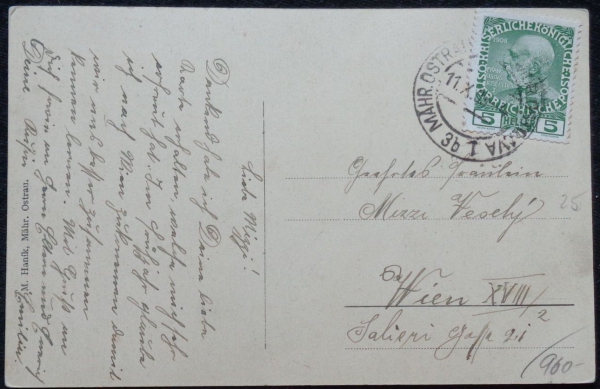 Liebe Mizzi!
Dankend habe ich Deine liebe
Karte erhalten, welche mich sehr
erfreut hat. Im Frühjahr glaube
ich nach Wien zu kommen damit
wir uns besser zusammen
können lernen. Mit Gruß an
Dich sowie an Deine Eltern und
Deine
M. Haník, Mähr. Ostrau.
MÄHR. OSTRAU
11.X
1 9c
KAISERLICHE KÖNIGLICHE
ÖSTERREICHISCHE POST
5 HELLER 5
1908
Geehrtes Fräulein
Mizzi Veschý
25
Wien XVIII/2
Salieri Gasse 21
960-